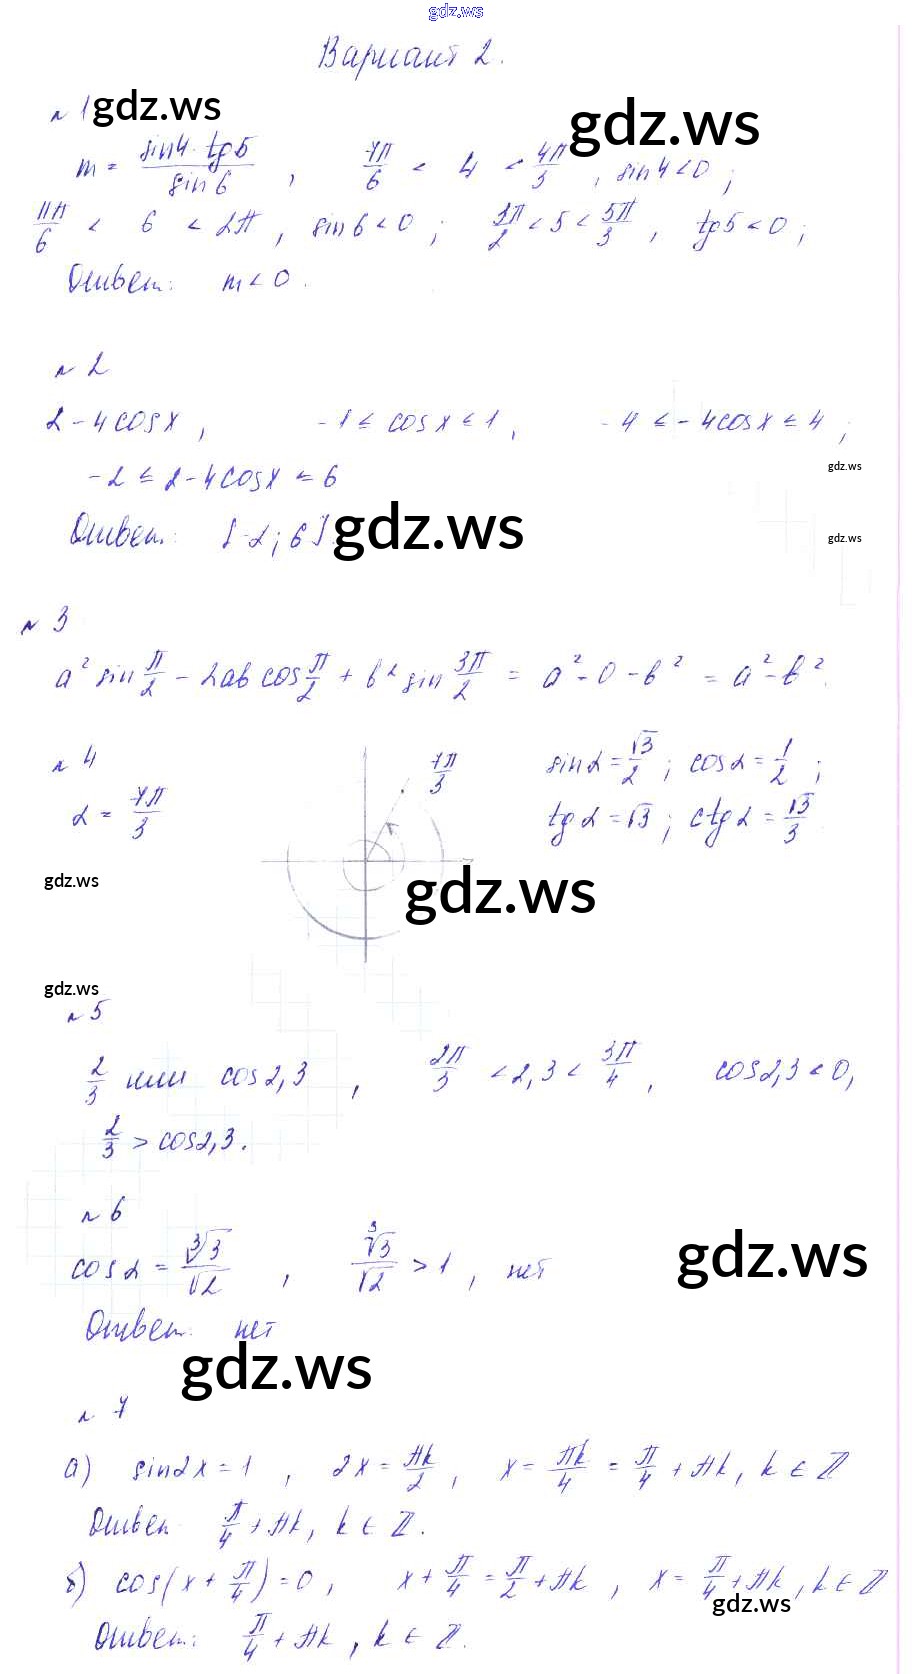 gdz.ws
Вариант 2.
n 1 gdz.ws gdz.ws
m = sin4 · tg5 / sin 6 , 7π/6 < 4 < 4π/3 , sin4<0 ;
11π/6 < 6 < 2π , sin6<0 ; 3π/2 < 5 < 5π/3 , tg5<0 ;
Ответ: m<0 .
n 2
2 - 4cosx , -1 ≤ cosx ≤ 1 , -4 ≤ -4cosx ≤ 4 ;
-2 ≤ 2-4cosx ≤ 6
gdz.ws
Ответ: [-2; 6]. gdz.ws
gdz.ws
n 3
a² sin π/2 - 2ab cos π/2 + b² sin 3π/2 = a² - 0 - b² = a² - b².
n 4 7π/3 sinα = √3/2 ; cosα = 1/2 ;
α = 7π/3 tgα = √3 ; ctgα = √3/3
gdz.ws gdz.ws
gdz.ws
n 5
2/3 или cos2,3 , 2π/3 < 2,3 < 3π/4 , cos2,3<0,
2/3 > cos2,3.
n 6
cosα = ∛3/√2 , ∛3/√2 > 1 , нет
gdz.ws
Ответ: нет
gdz.ws
n 7
а) sin2x = 1 , 2x = πk/2 , x = πk/4 = π/4 + πk, k ∈ Z
Ответ π/4 + πk, k ∈ Z.
б) cos(x + π/4) = 0 , x + π/4 = π/2 + πk , x = π/4 + πk, k ∈ Z
gdz.ws
Ответ: π/4 + πk, k ∈ Z.